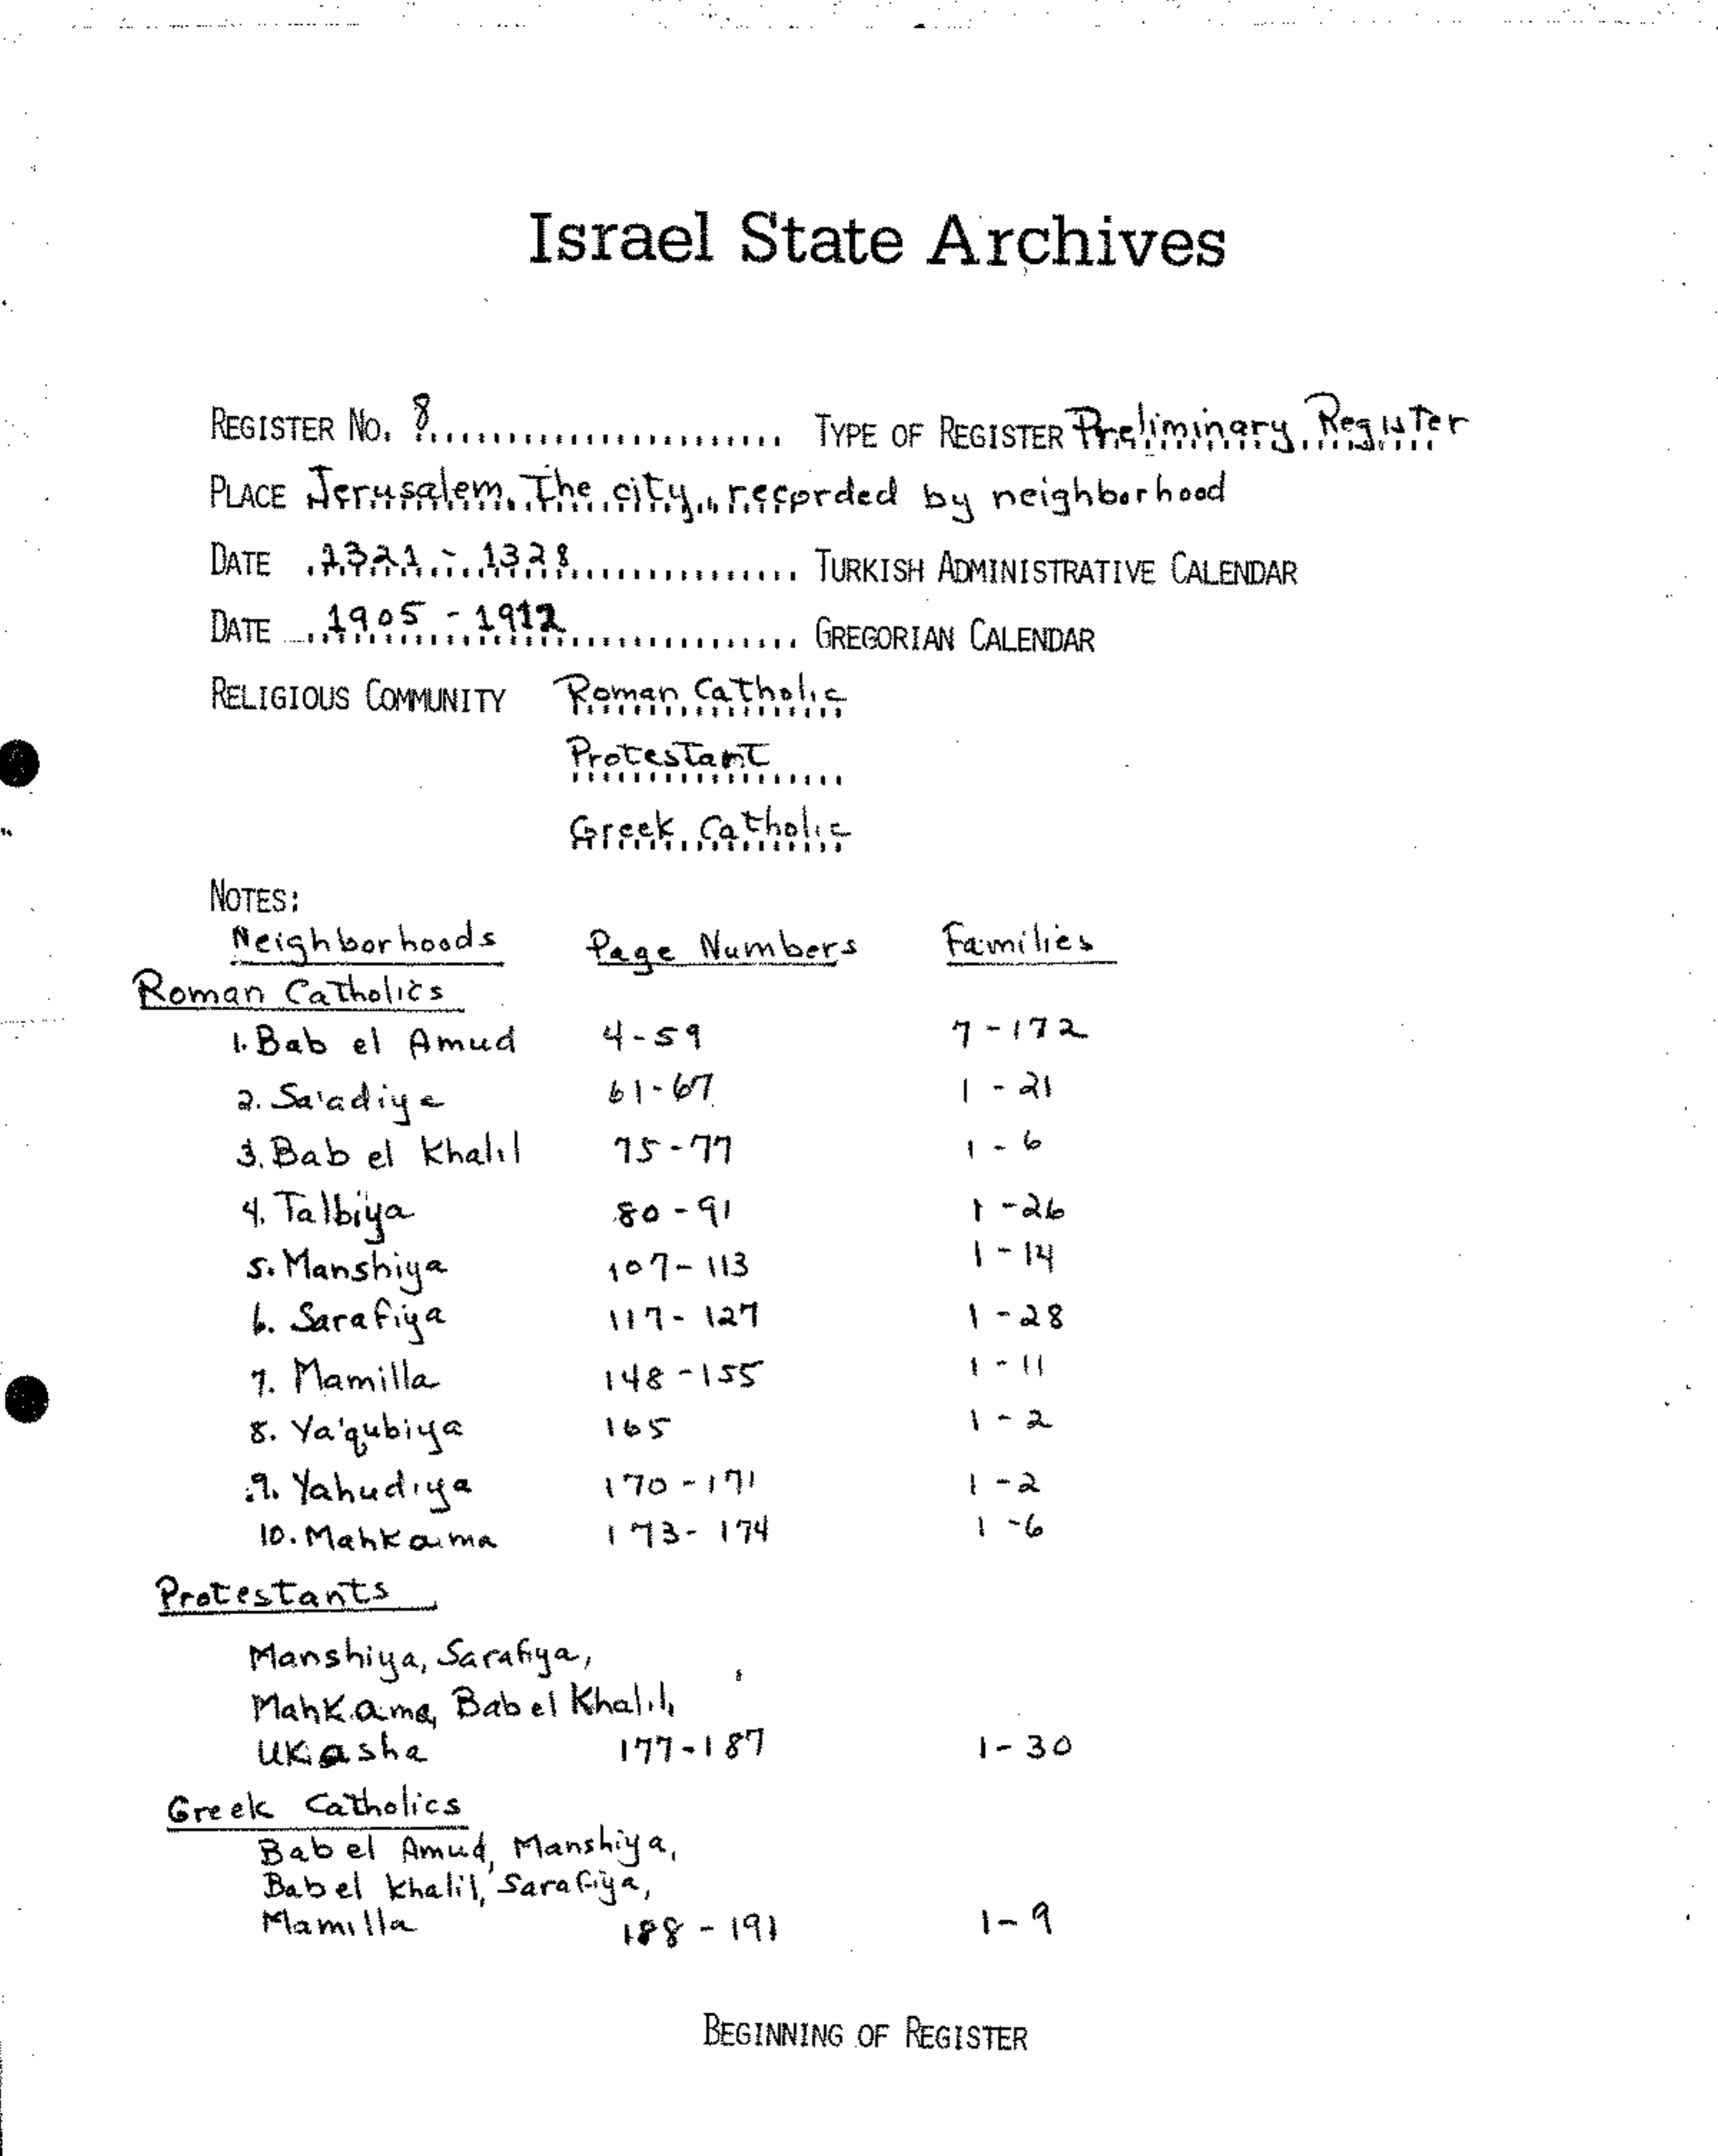 Israel State Archives
REGISTER NO. 8 TYPE OF REGISTER Preliminary Register
PLACE Jerusalem. The city, recorded by neighborhood
DATE 1321 - 1328 TURKISH ADMINISTRATIVE CALENDAR
DATE 1905 - 1912 GREGORIAN CALENDAR
RELIGIOUS COMMUNITY Roman Catholic
Protestant
Greek Catholic
NOTES:
Neighborhoods Page Numbers Families
Roman Catholics
1. Bab el Amud 4-59 7-172
2. Sa'adiye 61-67 1 - 21
3. Bab el Khalil 75-77 1 - 6
4. Talbiya 80-91 1 - 26
5. Manshiya 107-113 1 - 14
6. Sarafiya 117-127 1 - 28
7. Mamilla 148-155 1 - 11
8. Ya'qubiya 165 1 - 2
9. Yahudiya 170-171 1 - 2
10. Mahkama 173-174 1 - 6
Protestants
Manshiya, Sarafiya,
Mahkama, Bab el Khalil,
Ukasha 177-187 1-30
Greek Catholics
Bab el Amud, Manshiya,
Bab el Khalil, Sarafiya,
Mamilla 188-191 1-9
BEGINNING OF REGISTER